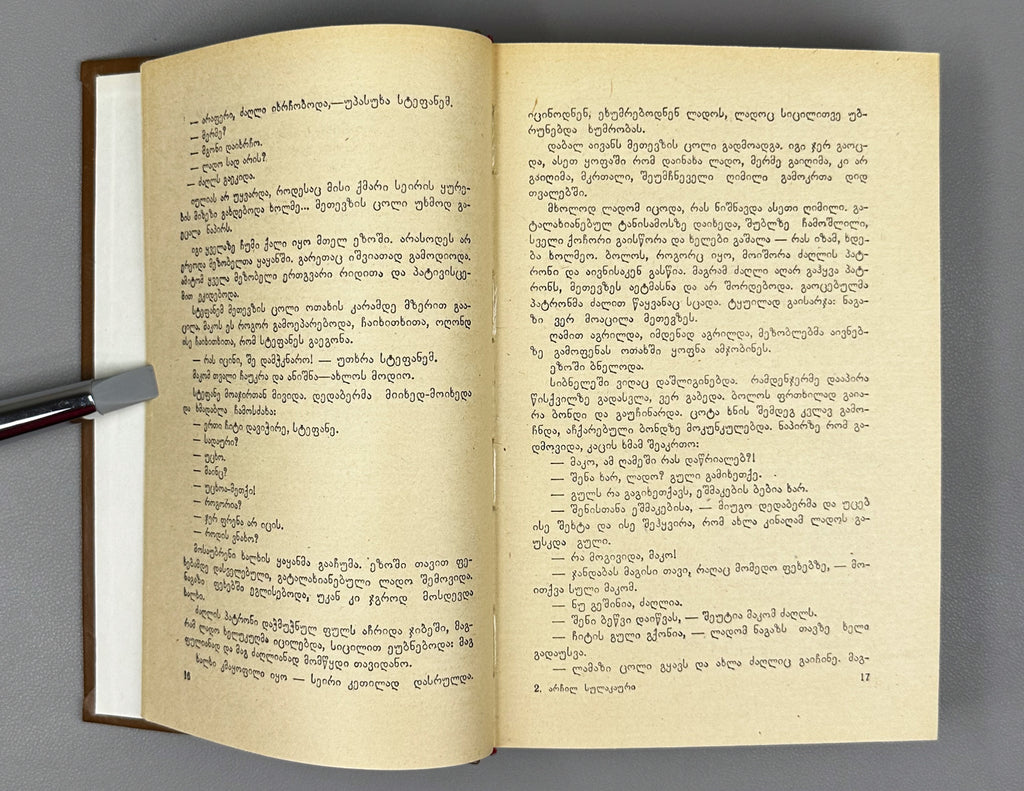 — არაფერი, ძაღლი იხრჩობოდა,—უპასუხა სტეფანემ.
— მერმე?
— მგონი დაიხრჩო.
— ლადო სად არის?
— ძაღლს გაეკიდა.
იულიას არ უყვარდა, როდესაც მისი ქმარი სეირის ყურე-
ბის მიზეზი გახდებოდა ხოლმე... მეთევზის ცოლი უხმოდ გა-
ეცალა ნაპირს.
იგი ყველაზე ჩუმი ქალი იყო მთელ ეზოში. არასოდეს არ
ერეოდა მეზობელთა ყაყანში. გარეთაც იშვიათად გამოდიოდა.
ამიტომ ყველა მეზობელი ერთგვარი რიდითა და პატივისცე-
მით ეკიდებოდა.
სტეფანემ მეთევზის ცოლი ოთახის კარამდე მზერით გაა-
ცილა. მაკოს ეს როგორ გამოეპარებოდა, ჩაიხითხითა, ოღონდ
ისე ჩაიხითხითა, რომ სტეფანეს გაეგონა.
— რას იცინი, შე დამჭკნარო! — უთხრა სტეფანემ.
მაკომ თვალი ჩაუკრა და ანიშნა—ახლოს მოდიო.
სტეფანე მოაჯირთან მივიდა. დედაბერმა მიიხედ-მოიხედა
და ხმადაბლა ჩამოსძახა:
— ერთი ჩიტი დავიჭირე, სტეფანე.
— სადაური?
— უცხო.
— მაინც?
— უცხოა-მეთქი!
— როგორია?
— ჯერ ფრენა არ იცის.
— როდის ვნახო?
მოსაუბრენი ხალხის ყაყანმა გააჩუმა. ეზოში თავით ფე-
ხებამდე დასველებული, გატალახიანებული ლადო შემოვიდა.
ნაგაზი ფეხებში ეგლისებოდა, უკან კი ჯგროდ მოსდევდა
ხალხი.
ძაღლის პატრონი დაჭმუჭნულ ფულს აჩრიდა ჯიბეში, მაგ-
რამ ლადო ხელუკუღმა იცილებდა, სიცილით ეუბნებოდა: მაგ
ფულიანად და მაგ ძაღლიანად მომწყდი თავიდანო.
ხალხი კმაყოფილი იყო — სეირი კეთილად დასრულდა.
16
იცინოდნენ, ეხუმრებოდნენ ლადოს, ლადოც სიცილითვე უბ-
რუნებდა ხუმრობას.
დაბალ აივანს მეთევზის ცოლი გადმოადგა. იგი ჯერ გაოც-
და, ასეთ ყოფაში რომ დაინახა ლადო, მერმე გაიღიმა, კი არ
გაიღიმა, მკრთალი, შეუმჩნეველი ღიმილი გამოკრთა დიდ
თვალებში.
მხოლოდ ლადომ იცოდა, რას ნიშნავდა ასეთი ღიმილი. გა-
ტალახიანებულ ტანისამოსზე დაიხედა, შუბლზე ჩამოშლილი,
სველი ქოჩორი გაისწორა და ხელები გაშალა — რას იზამ, ხდე-
ბა ხოლმეო. ბოლოს, როგორც იყო, მოიშორა ძაღლის პატ-
რონი და აივნისაკენ გასწია. მაგრამ ძაღლი აღარ გაჰყვა პატ-
რონს, მეთევზეს აეტმასნა და არ შორდებოდა. გაოცებულმა
პატრონმა ძალით წაყვანაც სცადა. ტყუილად გაისარჯა: ნაგა-
ზი ვერ მოაცილა მეთევზეს.
ღამით აგრილდა, იმდენად აგრილდა, მეზობლებმა აივნებ-
ზე გამოფენას ოთახში ყოფნა ამჯობინეს.
ეზოში ბნელოდა.
სიბნელეში ვიღაც დაშლიგინებდა. რამდენჯერმე დააპირა
წისქვილზე გადასვლა, ვერ გაბედა. ბოლოს ფრთხილად გაია-
რა ბონდი და გაუჩინარდა. ცოტა ხნის შემდეგ კვლავ გამო-
ჩნდა, აჩქარებული ბონდზე მოკუნკულებდა. ნაპირზე რომ გა-
დმოვიდა, კაცის ხმამ შეაკრთო:
— მაკო, ამ ღამეში რას დაწრიალებ?!
— შენა ხარ, ლადო? გული გამიხეთქე.
— გულს რა გაგიხეთქავს, ეშმაკების ბებია ხარ.
— შენისთანა ეშმაკებისა, — მიუგო დედაბერმა და უცებ
ისე შეხტა და ისე შეჰყვირა, რომ ახლა კინაღამ ლადოს გა-
უსკდა გული.
— რა მოგივიდა, მაკო!
— ჯანდაბას მაგისი თავი, რაღაც მომედო ფეხებზე, — მო-
ითქვა სული მაკომ.
— ნუ გეშინია, ძაღლია.
— შენი ბეწვი დაიწვას, — შეუტია მაკომ ძაღლს.
— ჩიტის გული გქონია, — ლადომ ნაგაზს თავზე ხელი
გადაუსვა.
— ლამაზი ცოლი გყავს და ახლა ძაღლიც გაიჩინე. მაგ-
2. არჩილ სულაკაური
17